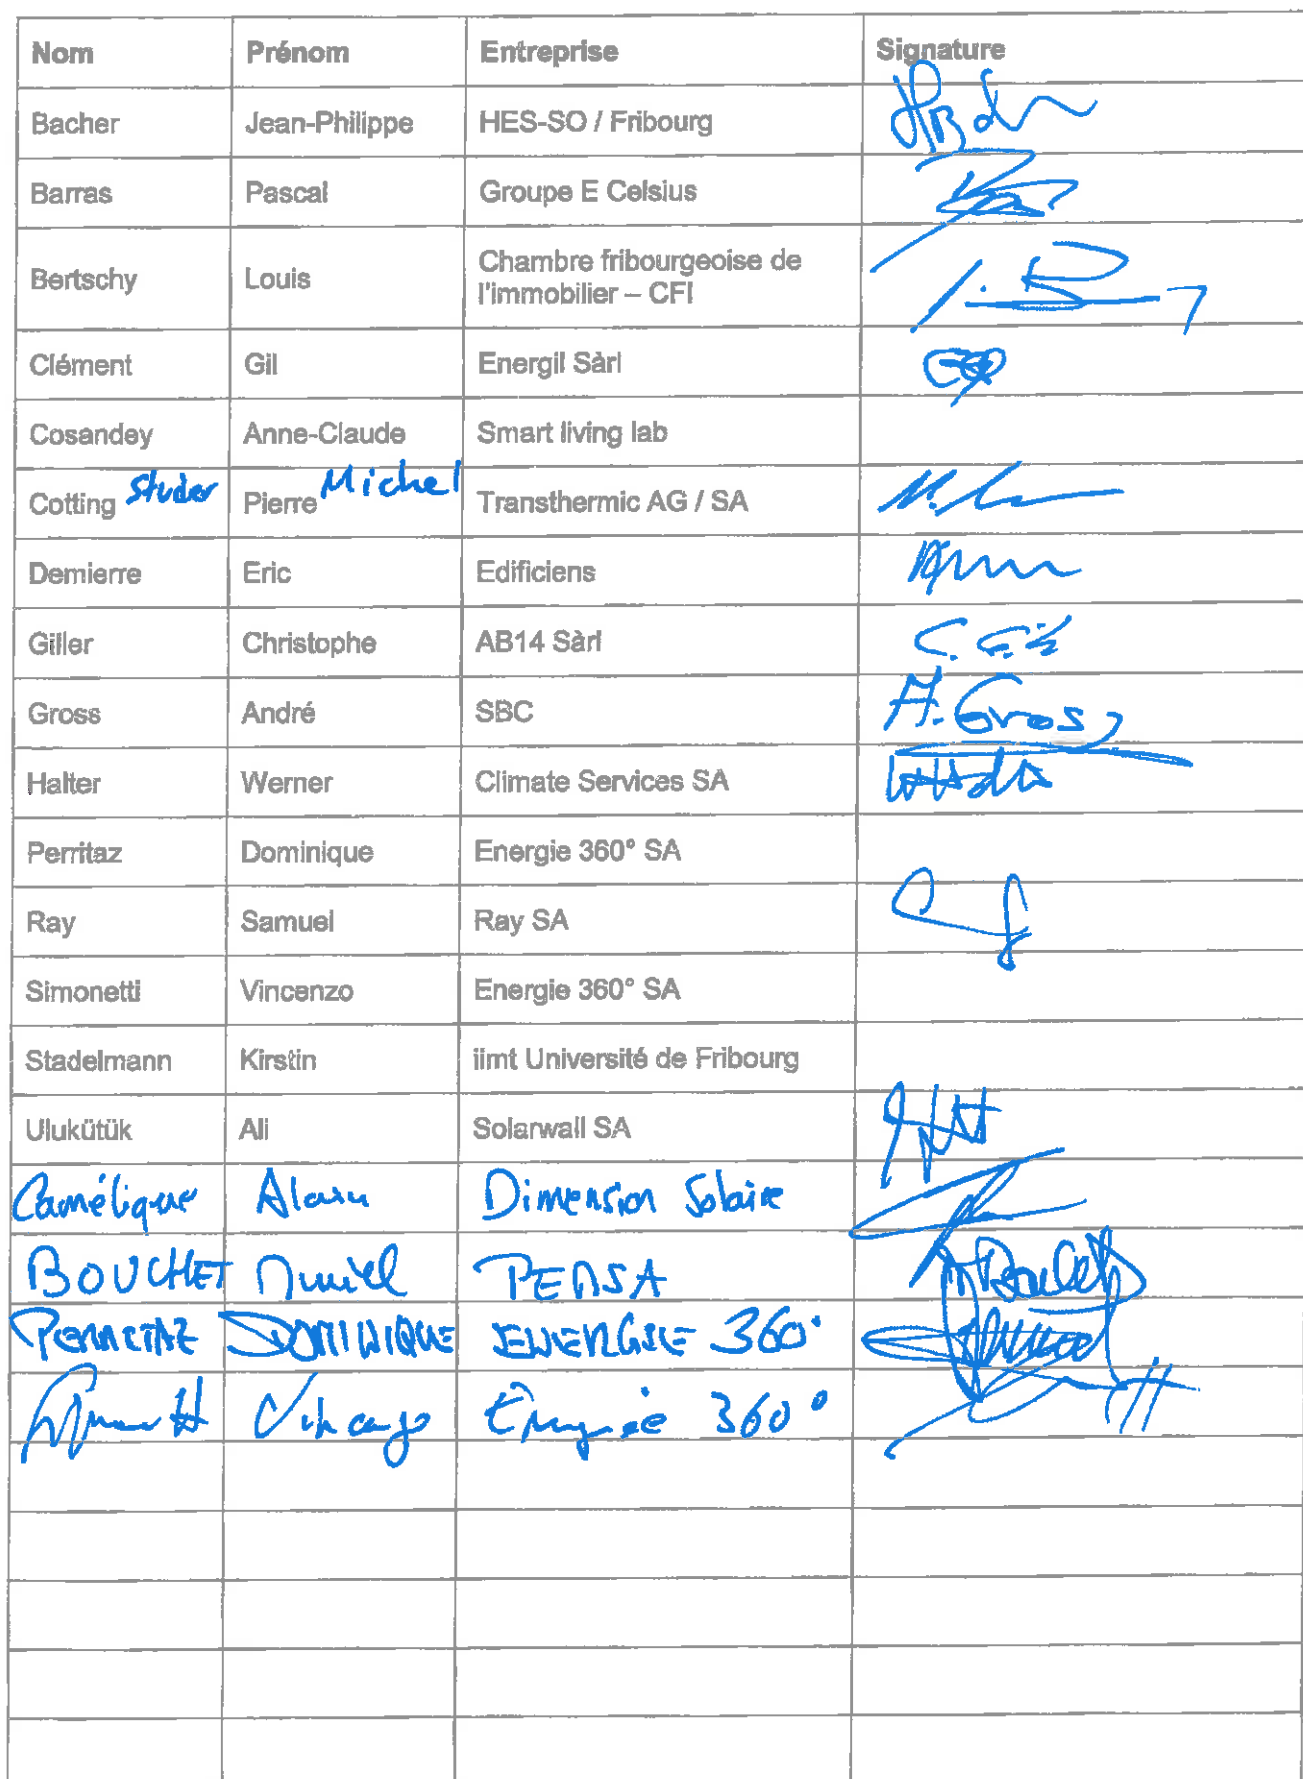 Nom Prénom Entreprise Signature
Bacher Jean-Philippe HES-SO / Fribourg
Barras Pascal Groupe E Celsius
Bertschy Louis Chambre fribourgeoise de
l'immobilier – CFI
Clément Gil Energil Sàrl
Cosandey Anne-Claude Smart living lab
Cotting Studer Pierre Michel Transthermic AG / SA
Demierre Eric Edificiens
Giller Christophe AB14 Sàrl
Gross André SBC A. Gross
Halter Werner Climate Services SA
Perritaz Dominique Energie 360° SA
Ray Samuel Ray SA
Simonetti Vincenzo Energie 360° SA
Stadelmann Kirstin iimt Université de Fribourg
Ulukütük Ali Solarwall SA
Camélique Alain Dimension Solaire
BOUCHET PERSA
PERRITAZ DOMINIQUE ENERGIE 360°
Simonetti Vincenzo Energie 360°